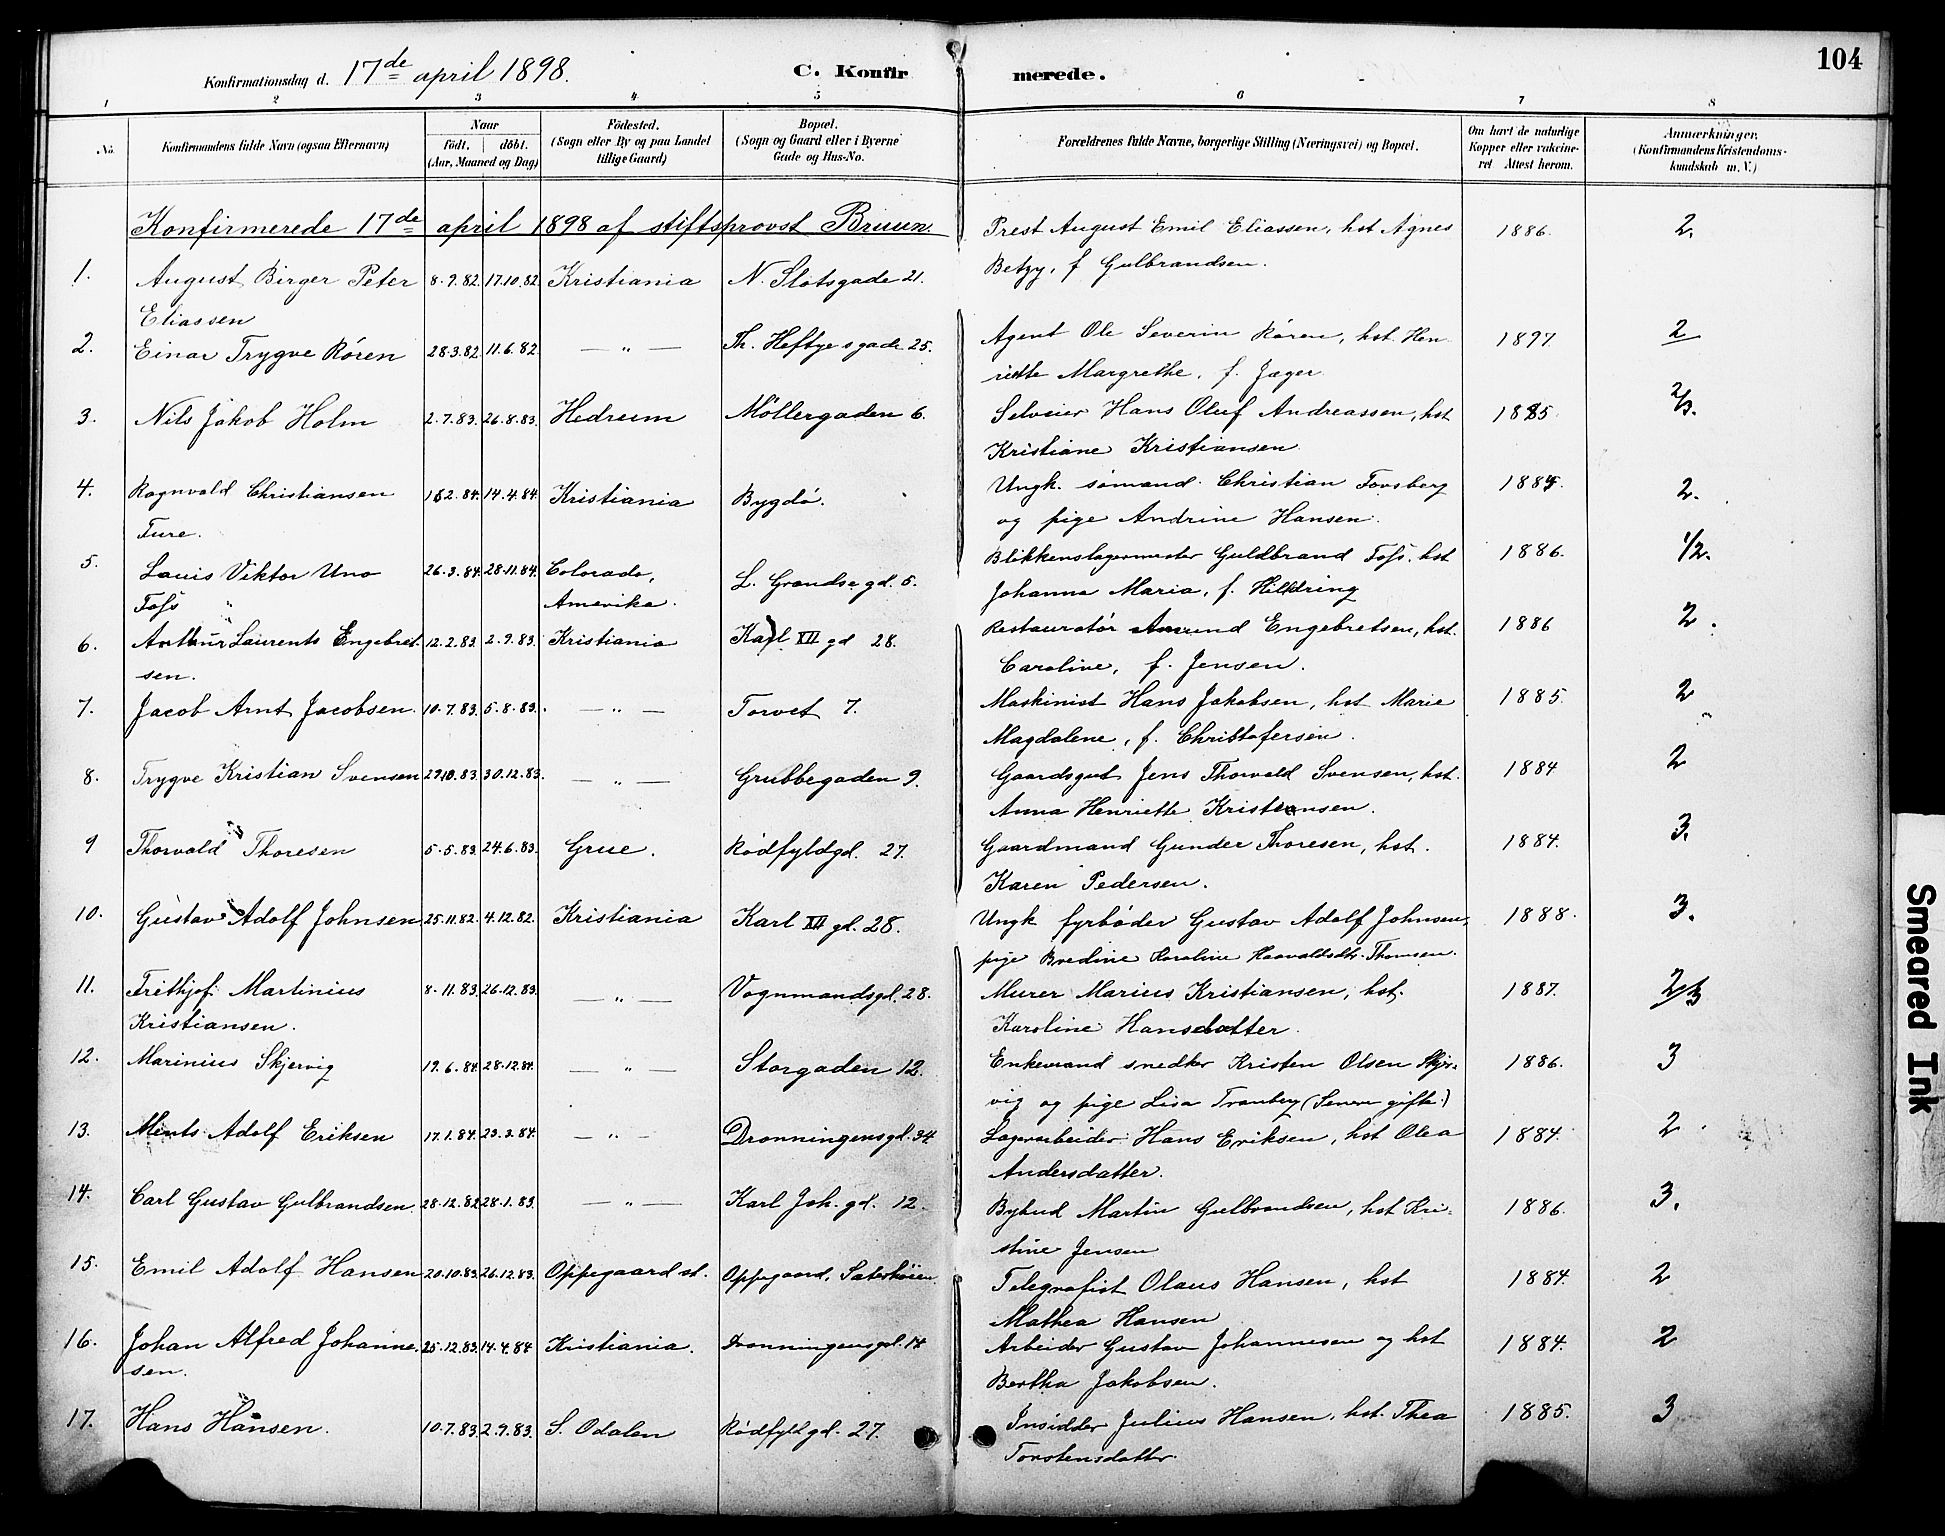 104
Konfirmationsdag d. 17de april 1898.
C. Konfirmerede.
1 2 3 4 5 6 7 8
No.
Konfirmandens fulde Navn (ogsaa Efternavn)
Naar
födt. döbt.
(Aar, Maaned og Dag)
Födested.
(Sogn eller By og paa Landet
tillige Gaard)
Bopæl.
(Sogn og Gaard eller i Byerne
Gade og Hus-No.
Forældrenes fulde Navne, borgerlige Stilling (Næringsvei) og Bopæl.
Om havt de naturlige
Kopper eller vakcine-
ret Attest herom.
Anmærkninger.
(Konfirmandens Kristendoms-
kundskab m. V.)
Konfirmerede 17de april 1898 af stiftsprovst Bruun.
1. August Birger Peter 8.9.82. 17.10.82 Kristiania N. Slotsgade 21. Prest August Emil Eliassen, hst Agnes 1886. 2.
Eliassen Betzy, f. Gulbrandsen.
2. Einar Trygve Róren 28.3.82 11.6.82 — „ — Th. Heftyes gade 25. Agent Ole Severin Róren, hst. Hen- 1897. 2
riette Margrethe, f. Jæger.
3. Nils Jakob Holm 2.7.83. 26.8.83. Hedrum Möllergaden 6. Selveier Hans Oluf Andreassen, hst 1885. 2/3.
Kristiane Kristiansen.
4. Ragnvald Christiansen 14.4.84. Kristiania Bygdó. Ungk. sómand Christian Forsberg 1885. 2.
Ture. og pige Andrine Hansen.
5. Lauis Viktor Uno 26.3.84. 28.11.84. Colorado, L. Grændsegd. 5. Blikkenslagermester Guldbrand Foss, hst 1886. 1/2.
Foss Amerika. Johanna Maria, f. Hildring
6. Arthur Laurents Engebret- 12.2.83 2.9.83. Kristiania Karl XII gd 28. Restauratór Amund Engebretsen, hst. 1886 2.
sen. Caroline, f. Jensen.
7. Jacob Arnt Jacobsen. 10.7.83. 5.8.83. — „ — Torvet 7. Maskinist Hans Jakobsen, hst Marie 1885. 2
Magdalene, f. Christofersen.
8. Trygve Kristian Svensen 29.10.83. 30.12.83. — „ — Grubbegaden 9. Gaardsgut Jens Thorvald Svensen, hst. 1884 2
Anna Henriette Kristiansen.
9 Thorvald Thoresen 5.5.83. 24.6.83. Grue. Ródfyldgd. 27. Gaardmand Gunder Thoresen, hst. 1884. 3.
Karen Pedersen.
10. Gustav Adolf Johnsen 25.11.82. 4.12.82. Kristiania Karl XII gd. 28. Ungk fyrbóder Gustav Adolf Johnsen, 1888. 3.
pige Bredine Karoline Haavaldsdtr. Thomsen.
11. Frithjof Martinius 8.11.83. 26.12.83. — „ — Vognmandsgd. 28. Murer Marius Kristiansen, hst. 1887. 2/3
Kristiansen. Karoline Hansdatter.
12. Marinius Skjervig 19.6.84. 28.12.84. — „ — Storgaden 12. Enkemand snedker Kristen Olsen Skjer- 1886. 3
vig og pige Lisa Tranberg (Senere gifte.)
13. Adolf Eriksen 17.1.84. 23.3.84. — „ — Dronningensgd. 34. Lagerarbeider Hans Eriksen, hst Olea 1884. 2
Andersdatter.
14. Carl Gustav Gulbrandsen. 28.12.82 28.1.83. — „ — Karl Joh. gd. 12. Bybud Martin Gulbrandsen, hst Kri- 1886. 3.
stine Jensen
15. Emil Adolf Hansen 20.10.83. 26.12.83. Oppegaard st. Oppegaard, Telegrafist Olaus Hansen, hst 1884. 2
Mathea Hansen
16. Johan Alfred Johanne- 25.12.83. 14.4.84 Kristiania. Dronningensgd. 14 Arbeider Gustav Johannesen og hst 1884. 2
sen. Bertha Jakobsen.
17. Hans Hansen. 10.7.83. 2.9.83. S. Odalen Ródfyldgd. 27. Insidder Julius Hansen, hst. Thea 1885. 3
Torstensdatter.
Smeared Ink